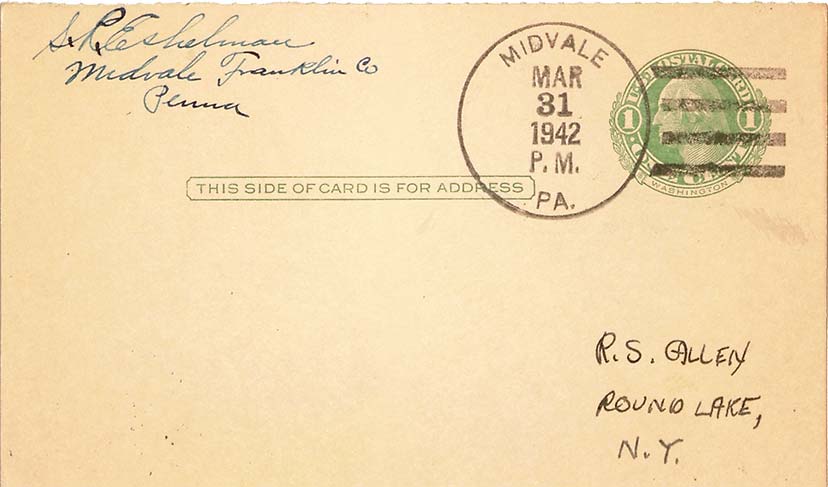 S. R. Eshelman
Midvale Franklin Co
Penna
MIDVALE
MAR
31
1942
P. M.
PA.
U.S. POSTAL CARD
1 1
ONE CENT
WASHINGTON
THIS SIDE OF CARD IS FOR ADDRESS
R. S. ALLEN
ROUND LAKE,
N. Y.